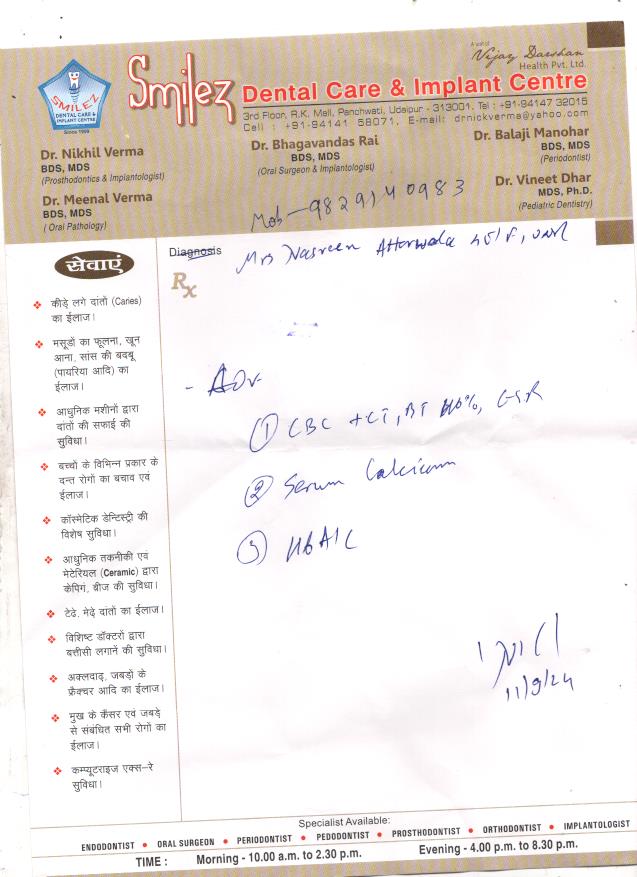 A unit of
Vijay Darshan
Health Pvt. Ltd.
Smilez Dental Care & Implant Centre
SMILEZ
DENTAL CARE &
IMPLANT CENTRE
Since 1999
3rd Floor, R.K. Mall, Panchwati, Udaipur - 313001. Tel : +91-94147 32015
Cell : +91-94141 58071, E-mail: drnickverma@yahoo.com
Dr. Nikhil Verma
BDS, MDS
(Prosthodontics & Implantologist)
Dr. Meenal Verma
BDS, MDS
( Oral Pathology)
Dr. Bhagavandas Rai
BDS, MDS
(Oral Surgeon & Implantologist)
Dr. Balaji Manohar
BDS, MDS
(Periodontist)
Dr. Vineet Dhar
MDS, Ph.D.
(Pediatric Dentistry)
Mob - 9829140983
Diagnosis
Mrs Nasreen Attarwala 45/F,
Rx
सेवाएं
कीड़े लगे दांतों (Caries)
का ईलाज।
मसूड़ों का फूलना, खून
आना, सांस की बदबू
(पायरिया आदि) का
ईलाज।
आधुनिक मशीनों द्वारा
दांतों की सफाई की
सुविधा।
बच्चों के विभिन्न प्रकार के
दन्त रोगों का बचाव एवं
ईलाज।
कॉस्मेटिक डेन्टिस्ट्री की
विशेष सुविधा।
आधुनिक तकनीकी एवं
मेटेरियल (Ceramic) द्वारा
केपिंग, ब्रीज की सुविधा।
टेढे, मेढ़े दांतों का ईलाज।
विशिष्ट डॉक्टरों द्वारा
बत्तीसी लगानें की सुविधा।
अक्लदाढ़, जबड़ों के
फ्रैक्चर आदि का ईलाज।
मुख के कैंसर एवं जबड़े
से संबंधित सभी रोगों का
ईलाज।
कम्प्यूटराइज एक्स-रे
सुविधा।
- Adv-
① CBC + CT, BT Hb%, ESR
② Serum Calcium
③ HbA1C
11/9/24
Specialist Available:
ENDODONTIST • ORAL SURGEON • PERIODONTIST • PEDODONTIST • PROSTHODONTIST • ORTHODONTIST • IMPLANTOLOGIST
TIME : Morning - 10.00 a.m. to 2.30 p.m. Evening - 4.00 p.m. to 8.30 p.m.